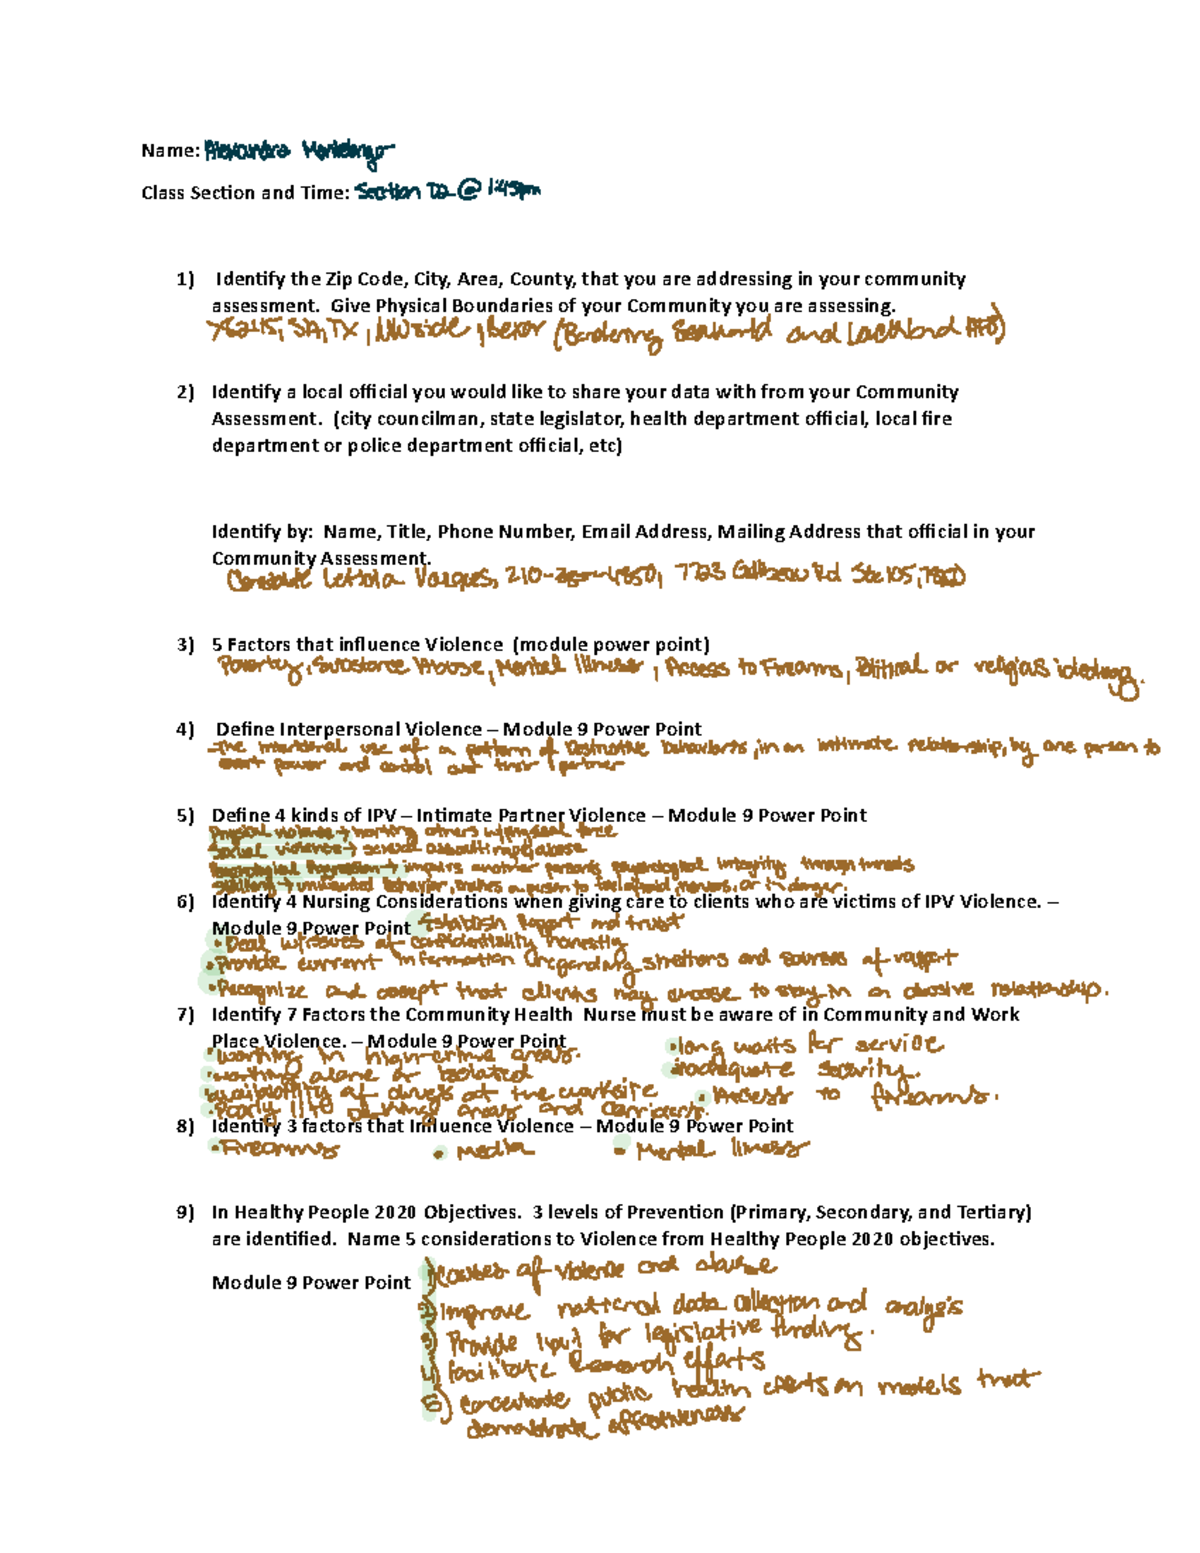 Name: Alexandra
Class Section and Time: Section D2 @ 1:45pm
1) Identify the Zip Code, City, Area, County, that you are addressing in your community
assessment. Give Physical Boundaries of your Community you are assessing.
SA, TX, NW side, Bexar (Bordering Seaworld and Lackland AFB)
2) Identify a local official you would like to share your data with from your Community
Assessment. (city councilman, state legislator, health department official, local fire
department or police department official, etc)
Identify by: Name, Title, Phone Number, Email Address, Mailing Address that official in your
Community Assessment.
Vazques, 7723 Guilbeau Rd Ste 105,
3) 5 Factors that influence Violence (module power point)
Poverty, Substance Abuse, Mental Illness, Access to Firearms, Political or religious ideology.
4) Define Interpersonal Violence – Module 9 Power Point
The use of a pattern of Destructive behaviors, in an intimate relationship, by one person to
exert power and control over their partner
5) Define 4 kinds of IPV – Intimate Partner Violence – Module 9 Power Point
Physical violence → hurting others w/ physical force
Sexual violence → sexual assault/rape/abuse
Psychological Aggression → impairs another person's psychological integrity through threats
Stalking → unwanted behavior, makes a person to feel afraid, nervous, or in danger.
6) Identify 4 Nursing Considerations when giving care to clients who are victims of IPV Violence. –
Module 9 Power Point Establish Rapport and trust
• Deal w/ issues of confidentiality honestly
• Provide current information regarding shelters and sources of support
• Recognize and accept that clients may choose to stay in an abusive relationship.
7) Identify 7 Factors the Community Health Nurse must be aware of in Community and Work
Place Violence. – Module 9 Power Point • long waits for service
• working in high-crime areas.
• working alone or isolated • inadequate security.
• availability of drugs at the worksite • Access to firearms.
• Poorly lit parking areas and corridors.
8) Identify 3 factors that Influence Violence – Module 9 Power Point
• Firearms • Media • Mental illness
9) In Healthy People 2020 Objectives. 3 levels of Prevention (Primary, Secondary, and Tertiary)
are identified. Name 5 considerations to Violence from Healthy People 2020 objectives.
Module 9 Power Point 1) Causes of violence and abuse
2) Improve national data collection and analysis
3) Provide input for legislative funding.
4) Facilitate Research efforts
5) Concentrate public health efforts on models that
demonstrate effectiveness